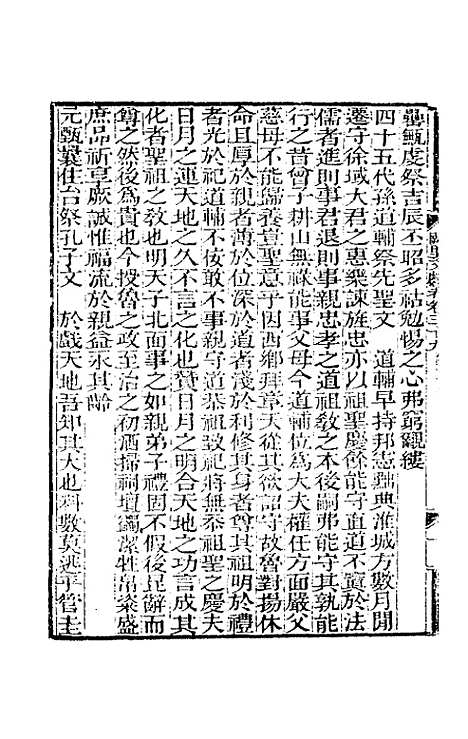 罍甒虔祭吉辰丕昭多祜勉惕之心弗窮覼縷
四十五代孫道輔祭先聖文　道輔早持邦憲黜典淮城方數月閒
遷守徐域大君之惠樂諫旌忠亦以祖聖慶餘能守直道不寘於法
儒者進則事君退則事親忠孝之道祖敎之本後嗣弗能守其孰能
行之昔曾子耕山無祿能事父母今道輔位為大夫權任方面嚴父
慈母不能歸養豈聖意乎因西鄉拜章天從其欲詔守故魯對揚休
命且厚於親者薄於位深於道者淺於利修其身者尊其祖明於禮
者光於祀道輔不佞敢不事親守道恭祖致祀將無忝祖聖之慶夫
日月之運天地之久不言之化也贊日月之明合天地之功言成其
化者聖祖之敎也明天子北面事之如親弟子禮固不假後昆辭而
尊之然後為貴也今授魯之政至治之初洒掃祠壇蠲潔牲帛粢盛
庶品祈享厥誠惟福流於親益永其齡
元甄囊住台祭孔子文　於戲天地吾知其大也科數莫逃乎管圭